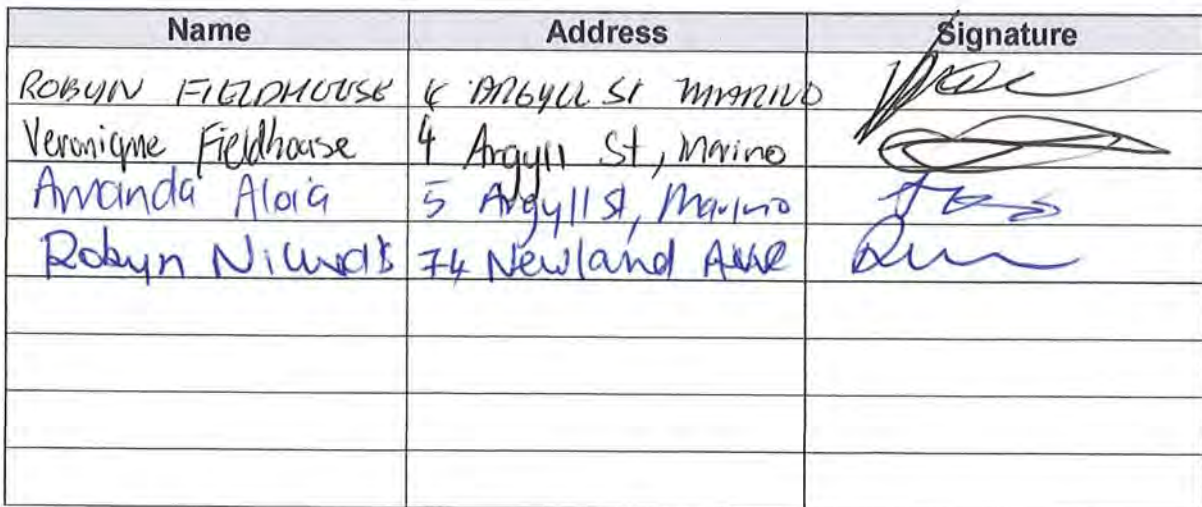 Name Address Signature
ROBYN FIELDHOUSE 4 ARGYLL St MARINO
Veronique Fieldhouse 4 Argyll St, Marino
Amanda Aloia 5 Argyll St, Marino
Robyn 74 Newland Ave